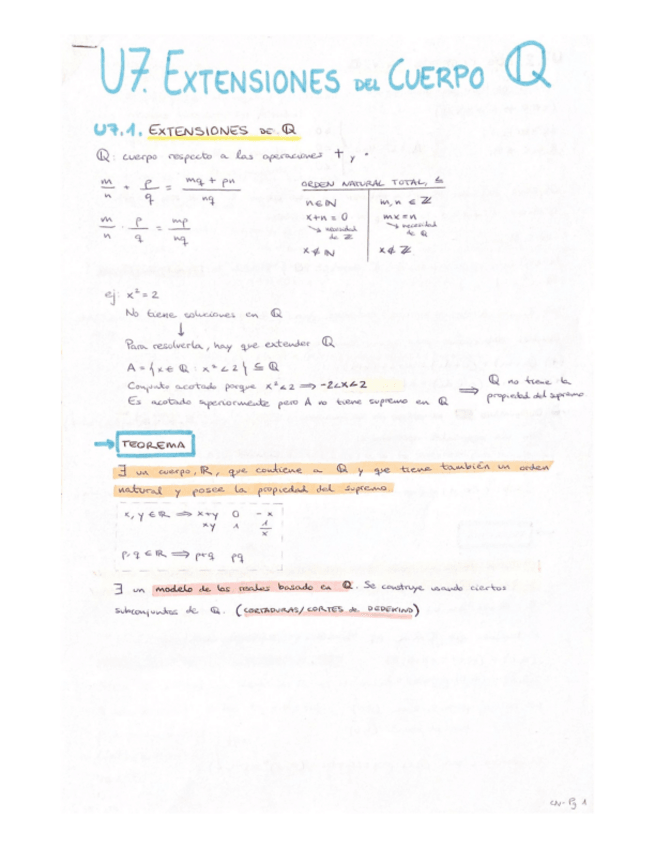 U7. EXTENSIONES DEL CUERPO ℚ
U7.1. EXTENSIONES DE ℚ
ℚ: cuerpo respecto a las operaciones + y ·
m/n + p/q = (mq + pn)/nq
m/n · p/q = mp/nq
ORDEN NATURAL TOTAL, ≤
n ∈ ℕ
x+n = 0
↳ necesidad de ℤ
x ∉ ℕ
m, n ∈ ℤ
mx = n
↳ necesidad de ℚ
x ∉ ℤ
ej: x² = 2
No tiene soluciones en ℚ
↓
Para resolverla, hay que extender ℚ
A = {x ∈ ℚ : x² < 2} ⊆ ℚ
Conjunto acotado porque x² < 2 ⟹ -2<x<2
Es acotado superiormente pero A no tiene supremo en ℚ
⟹ ℚ no tiene la
propiedad del supremo
→ TEOREMA
∃ un cuerpo, ℝ, que contiene a ℚ y que tiene también un orden
natural y posee la propiedad del supremo.
x, y ∈ ℝ ⟹ x+y 0 -x
xy 1 1/x
p, q ∈ ℝ ⟹ p+q pq
∃ un modelo de los reales basado en ℚ. Se construye usando ciertos
subconjuntos de ℚ. (CORTADURAS/CORTES de DEDEKIND)
Pg 1